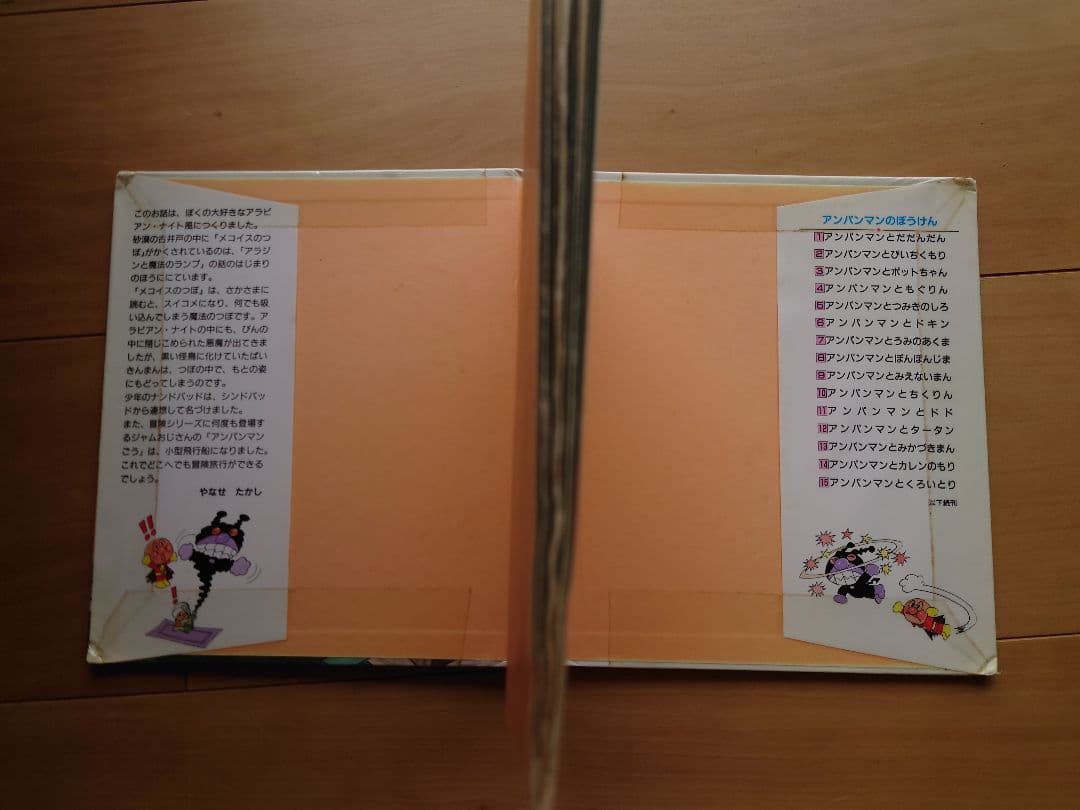 このお話は、ぼくの大好きなアラビ
アン・ナイト風につくりました。
砂漠の古井戸の中に「メコイスのつ
ぼ」がかくされているのは、「アラジ
ンと魔法のランプ」の話のはじまり
のほうににています。
「メコイスのつぼ」は、さかさまに
読むと、スイコメになり、何でも吸
い込んでしまう魔法のつぼです。ア
ラビアン・ナイトの中にも、びんの
中に閉じこめられた悪魔が出てきま
したが、黒い怪鳥に化けていたばい
きんまんは、つぼの中で、もとの姿
にもどってしまうのです。
少年のナンドバッドは、シンドバッ
ドから連想して名づけました。
また、冒険シリーズに何度も登場す
るジャムおじさんの「アンパンマン
ごう」は、小型飛行船になりました。
これでどこへでも冒険旅行ができる
でしょう。
やなせ たかし
!!
!
アンパンマンのぼうけん
1アンパンマンとだだんだん
2アンパンマンとびいちくもり
3アンパンマンとポットちゃん
4アンパンマンともぐりん
5アンパンマンとつみきのしろ
6アンパンマンとドキン
7アンパンマンとうみのあくま
8アンパンマンとぽんぽんじま
9アンパンマンとみえないまん
10アンパンマンとちくりん
11アンパンマンとドド
12アンパンマンとタータン
13アンパンマンとみかづきまん
14アンパンマンとカレンのもり
15アンパンマンとくろいとり
以下続刊